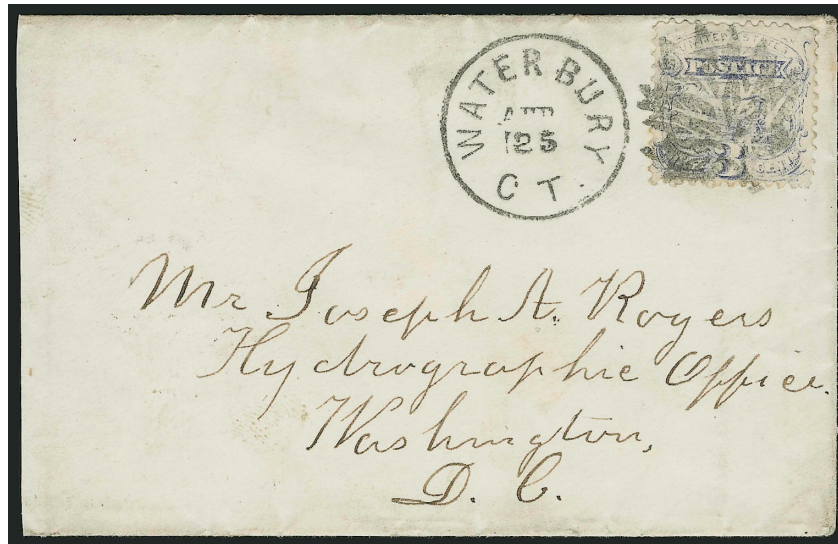 WATERBURY
APR
25
CT.
UNITED STATES
POSTAGE
3
Mr Joseph A. Rogers
Hydrographic Office.
Washington,
D. C.